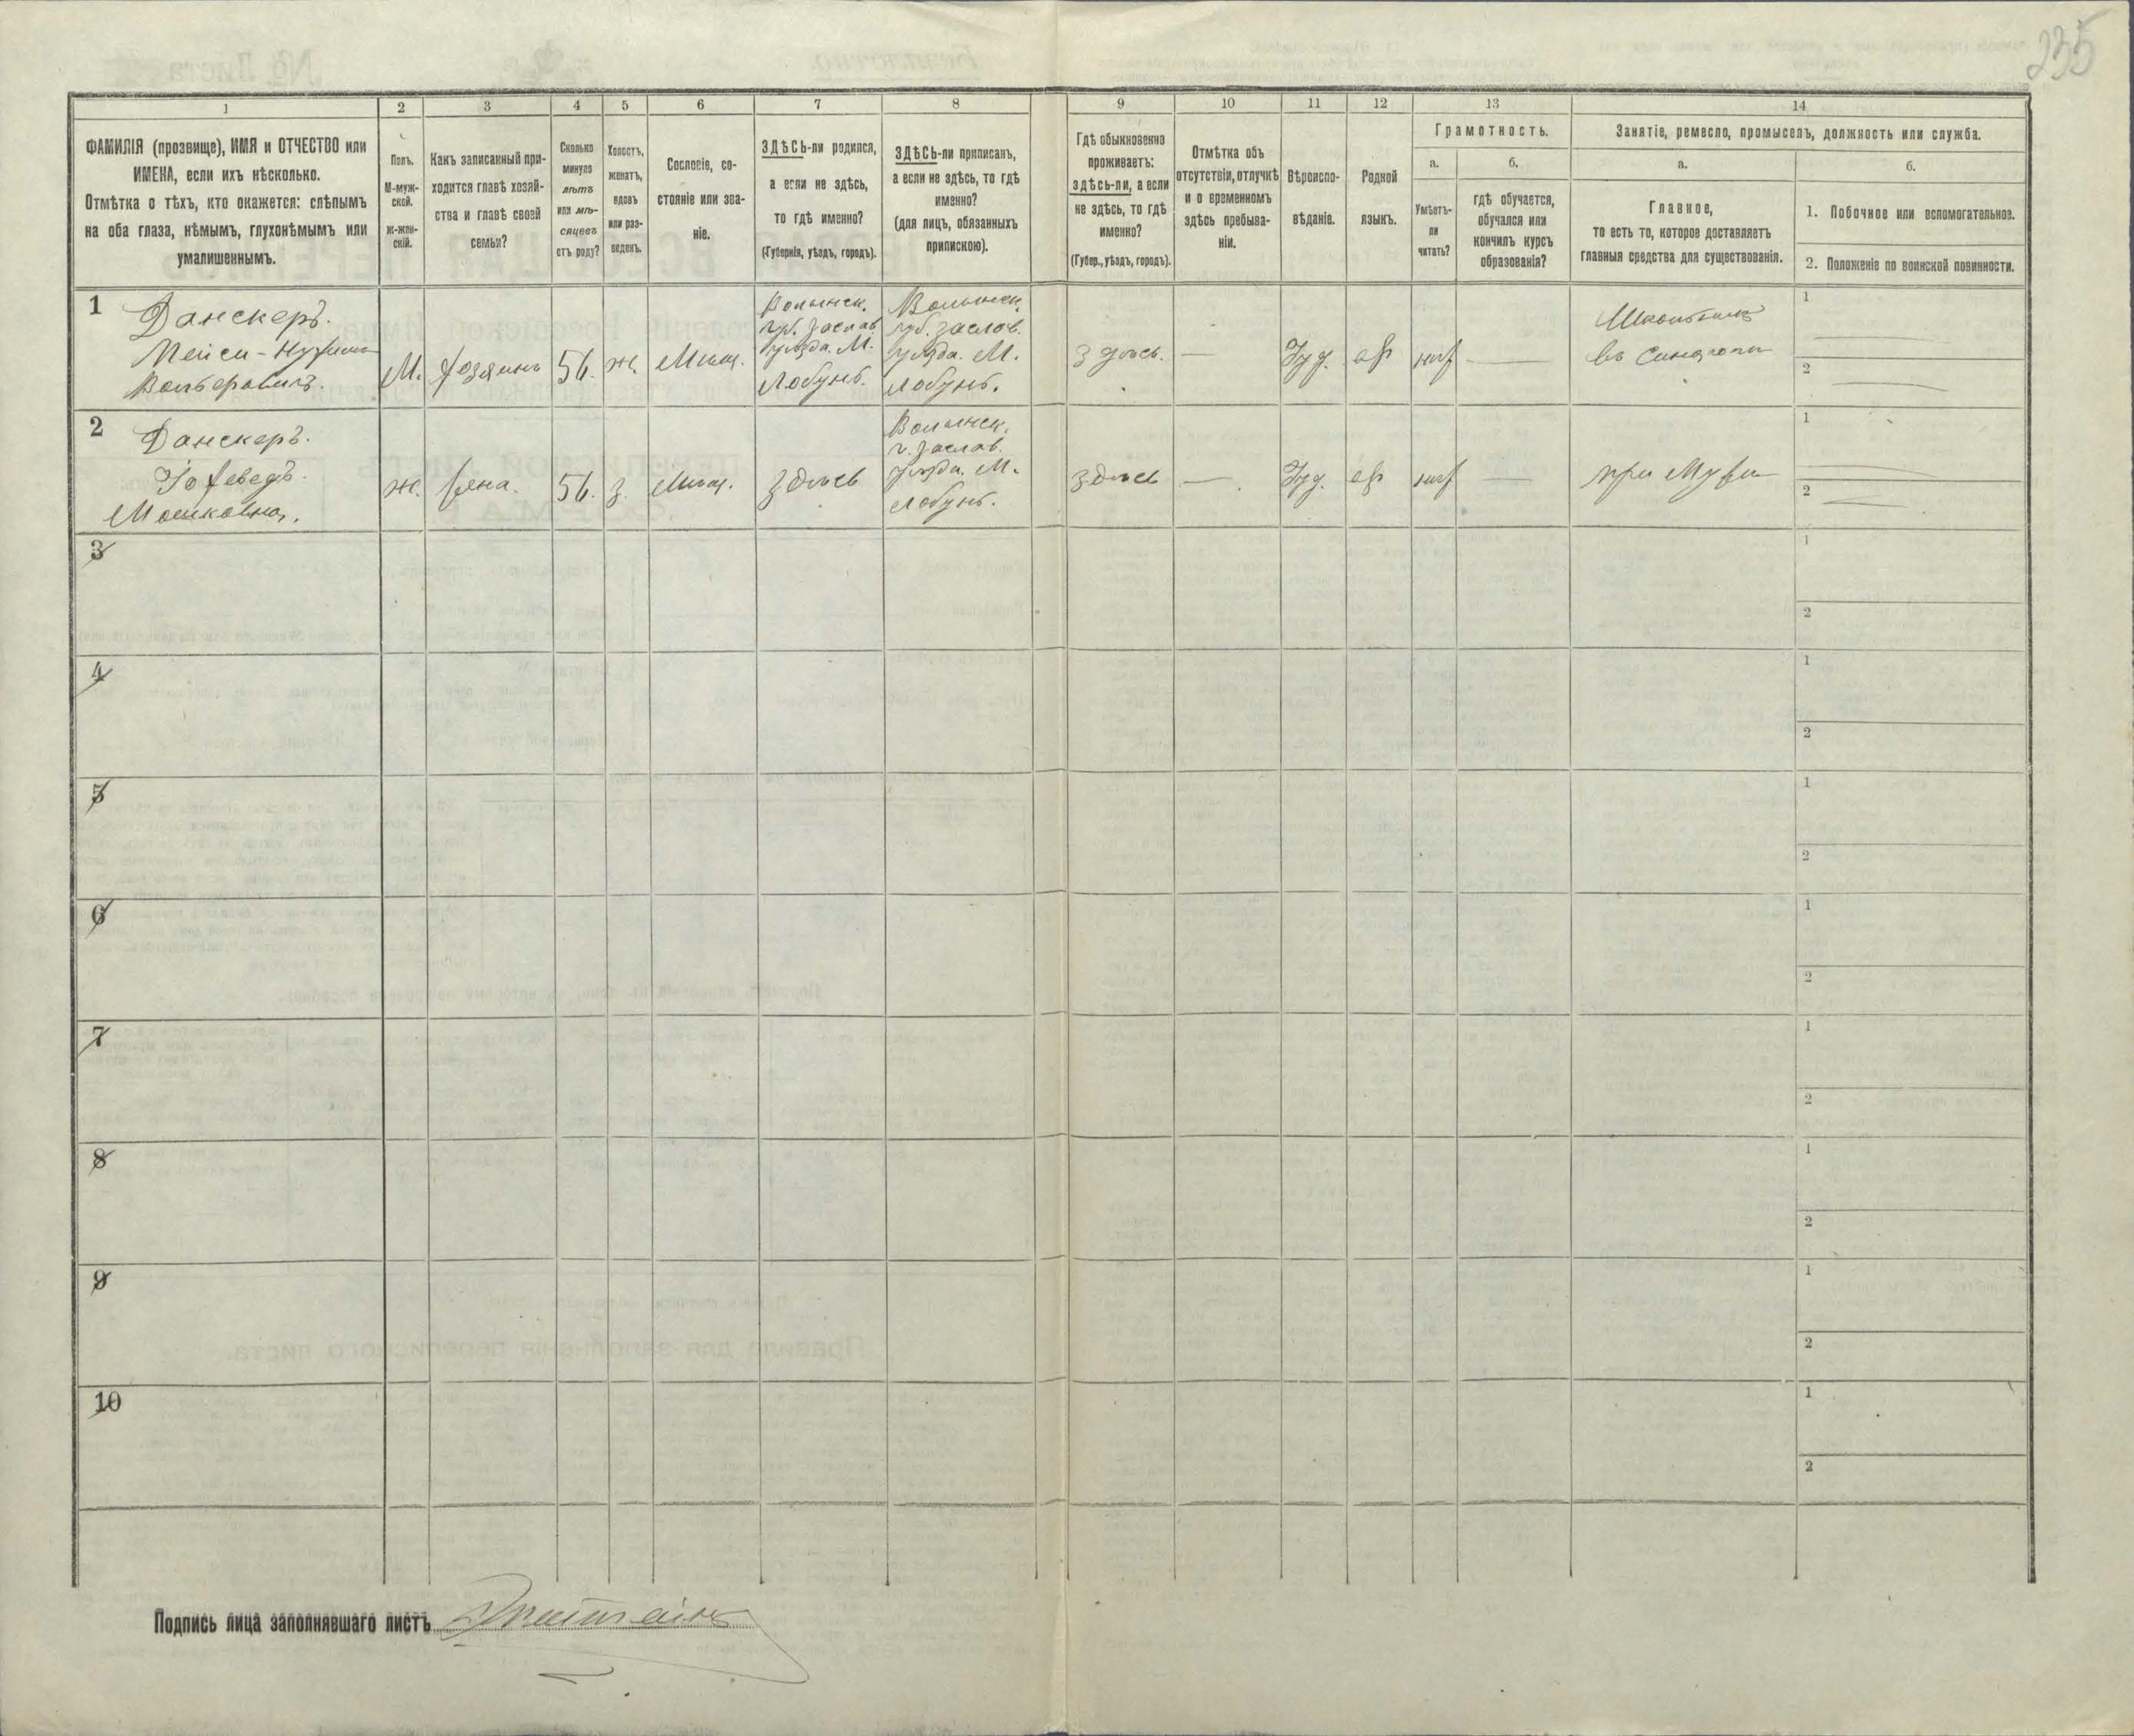 235
1
2
3
4
5
6
7
8
9
10
11
12
13
14
ФАМИЛІЯ (прозвище), ИМЯ и ОТЧЕСТВО или
ИМЕНА, если ихъ нѣсколько.
Отмѣтка о тѣхъ, кто окажется: слѣпымъ
на оба глаза, нѣмымъ, глухонѣмымъ или
умалишеннымъ.
Полъ.
М-муж-
ской.
ж-жен-
скій.
Какъ записанный при-
ходится главѣ хозяй-
ства и главѣ своей
семьи?
Сколько
минуло
лѣтъ
или мѣ-
сяцевъ
отъ роду?
Холостъ,
женатъ,
вдовъ
или раз-
веденъ.
Сословіе, со-
стояніе или зва-
ніе.
ЗДѢСЬ-ли родился,
а если не здѣсь,
то гдѣ именно?
(Губернія, уѣздъ, городъ).
ЗДѢСЬ-ли приписанъ,
а если не здѣсь, то гдѣ
именно?
(для лицъ, обязанныхъ
припискою).
Гдѣ обыкновенно
проживаетъ:
здѣсь-ли, а если
не здѣсь, то гдѣ
именно?
(Губер., уѣздъ, городъ).
Отмѣтка объ
отсутствіи, отлучкѣ
и о временномъ
здѣсь пребыва-
ніи.
Вѣроиспо-
вѣданіе.
Родной
языкъ.
Грамотность.
а.
Умѣетъ-
ли
читать?
б.
гдѣ обучается,
обучался или
кончилъ курсъ
образованія?
Занятіе, ремесло, промыселъ, должность или служба.
а.
Главное,
то есть то, которое доставляетъ
главныя средства для существованія.
б.
1. Побочное или вспомогательное.
2. Положеніе по воинской повинности.
1
Данскеръ.
Пейси-Нухимъ
Вольфовичъ.
М.
хозяинъ
56.
ж.
Мѣщ.
Волынск.
губ. Заслав.
уѣзда. М.
Лабунь.
Волынск.
губ. Заслав.
уѣзда. М.
Лабунь.
здѣсь.
—
Іуд.
евр
нѣт
—
въ синагоги
1
2
2
Данскеръ.
Іохеведъ.
Мошковна.
ж.
жена.
56.
з.
Мѣщ.
здѣсь
Волынск.
г. Заслав.
уѣзда. М.
Лабунь.
здѣсь
—
Іуд.
евр
нѣт
—
при мужи
1
2
3
1
2
4
1
2
5
1
2
6
1
2
7
1
2
8
1
2
9
1
2
10
1
2
Подпись лица заполнявшаго листъ